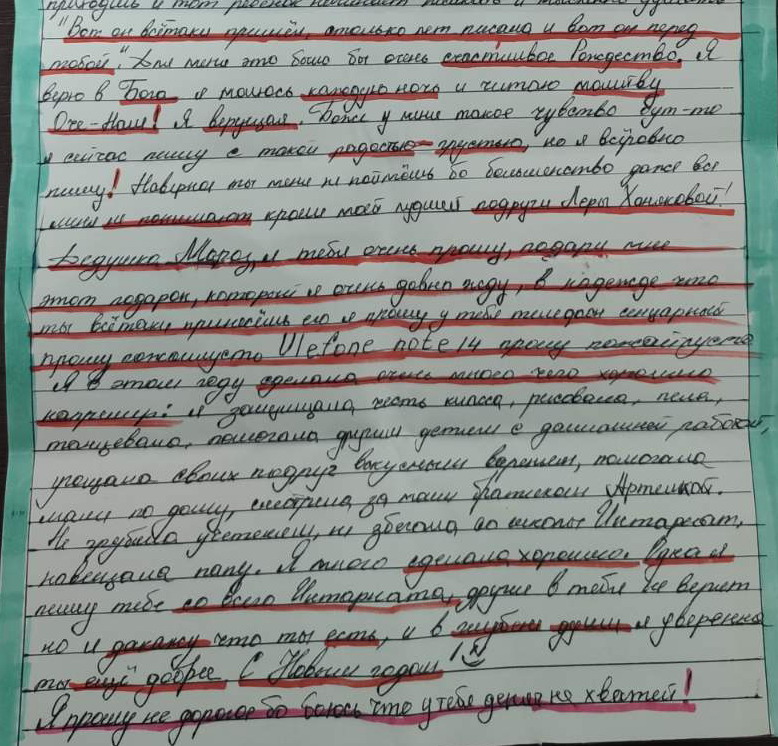 приходишь и тот ребёнок начинает
"Вот он всётаки пришёл, столько лет писала и вот он перед
тобой". Для меня это было бы очень счастливое Рождество. Я
верю в Бога я молюсь каждую ночь и читаю молитву
Оче-Наш! Я верущая. Боже у меня такое чувство бут-то
я сейчас пишу с такой радостью-грустью, но я всёровно
пишу! Наверное ты меня не поймёшь бо большенство даже все
меня не понимают кроме моей лудшей подруги Леры Хоняковой!
Дедушка Мороз, я тебя очень прошу, подари мне
этот подарок, который я очень давно жду, в надежде что
ты всётаки принесёшь его я прошу у тебя теледон сенцарный
прошу пожалусто Ulefone note 14 прошу пожайлусто
Я в этом году сделала очень много чего хорошего
капремер: я защищала честь класса, рисовала, пела,
танцевала, помогала другим детям с домашней работой,
угощала своих подруг вкусным варенем, помогала
маме по дому, смотрела за моим братиком Артемкой.
Не грубила учетелям, не збегала со школы Интарнат,
навещала папу. Я много сделала хорошего. Одна я
пишу тебе со всего Интарната, другие в тебя не верят
но я дакажу что ты есть, и в глубене души я уверенна
ты ещё добрее С Новым годом!
Я прошу не дорогое бо боюсь что у тебя денег не хватей!